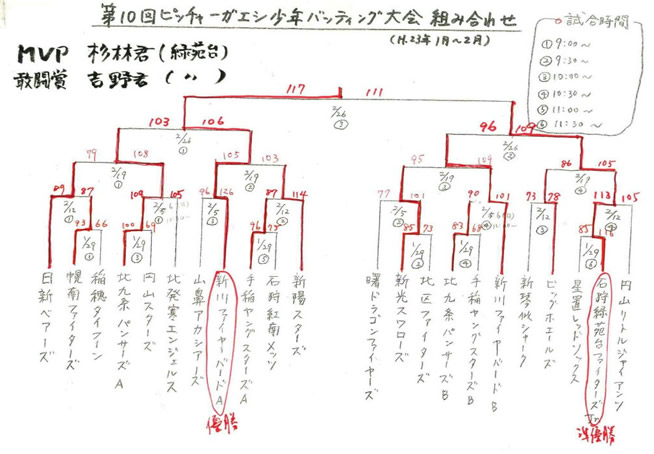 第10回ピッチャーガエシ少年バッティング大会 組み合わせ
(H.23年1月〜2月)
MVP 杉林君(緑苑台)
敢闘賞 吉野君(〃)
◎試合時間
① 9:00〜
② 9:30〜
③ 10:00〜
④ 10:30〜
⑤ 11:00〜
⑥ 11:30〜
117 111
2/26
103 106 96 109
2/26 2/26
99 108 105 103 95 109 86 105
2/19 2/19 2/19 2/19
89 87 109 105 96 126 87 114 77 101 90 101 73 78 113 105
2/12 2/5 2/12 2/5 2/12 2/12
93 66 100 69 96 75 85 73 83 68 85
1/29 1/29 1/29 1/29 1/29 1/29
日新ベアーズ
幌南ファイターズ
稲穂タイフーン
北九条パンサーズA
円山スターズ
北発寒エンジェルス
山鼻アカシアーズ
新川ファイヤーバードA
手稲ヤングスターズA
石狩紅南メッツ
新陽スターズ
曙ドラゴンファイヤーズ
新光スワローズ
北区ファイターズ
北九条パンサーズB
手稲ヤングスターズB
新川ファイヤーバードB
新琴似シャーク
ビッグホエールズ
星置レッドソックス
石狩緑苑台ファイターズJr
円山リトルジャイアンツ
優勝
準優勝